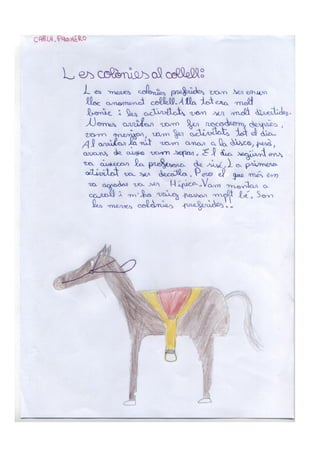 CARLA.
Les colònies al collell:
Les meves colònies preferides van ser en un
lloc anomenat collell. Alla tot era molt
bonic i les activitats van ser molt divertides.
Només arribar vam fer rocodrom, després,
vam menjar, vam fer activitats tot el dia
Al arribar la nit vam anar a la disco, però,
avans de aixo vam sopar. El dia següent ens
va aixecar la profesora de risé. La primera
activitat va ser decatló. Pero el que més em
va agradar va ser Hípica. Vam montar a
cavall i m'ho vaig passar molt bé. Son
les meves colònies preferides!!